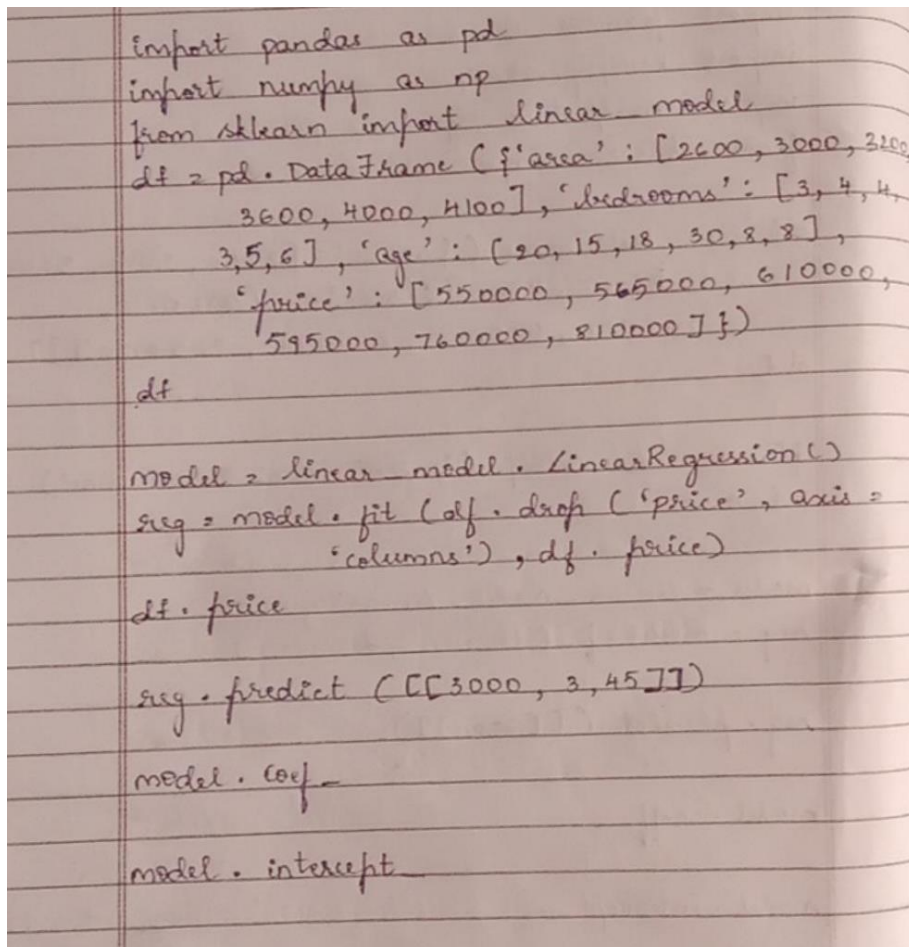 import pandas as pd
import numpy as np
from sklearn import linear_model
df = pd.DataFrame ({'area' : [2600, 3000, 3200,
3600, 4000, 4100], 'bedrooms' : [3, 4, 4,
3,5,6], 'age' : [20, 15, 18, 30, 8, 8],
'price' : [550000, 565000, 610000,
595000, 760000, 810000]})
df
model = linear_model.LinearRegression()
reg = model.fit (df.drop ('price', axis =
'columns'), df.price)
df.price
reg.predict ([[3000, 3, 45]])
model.coef_
model.intercept_